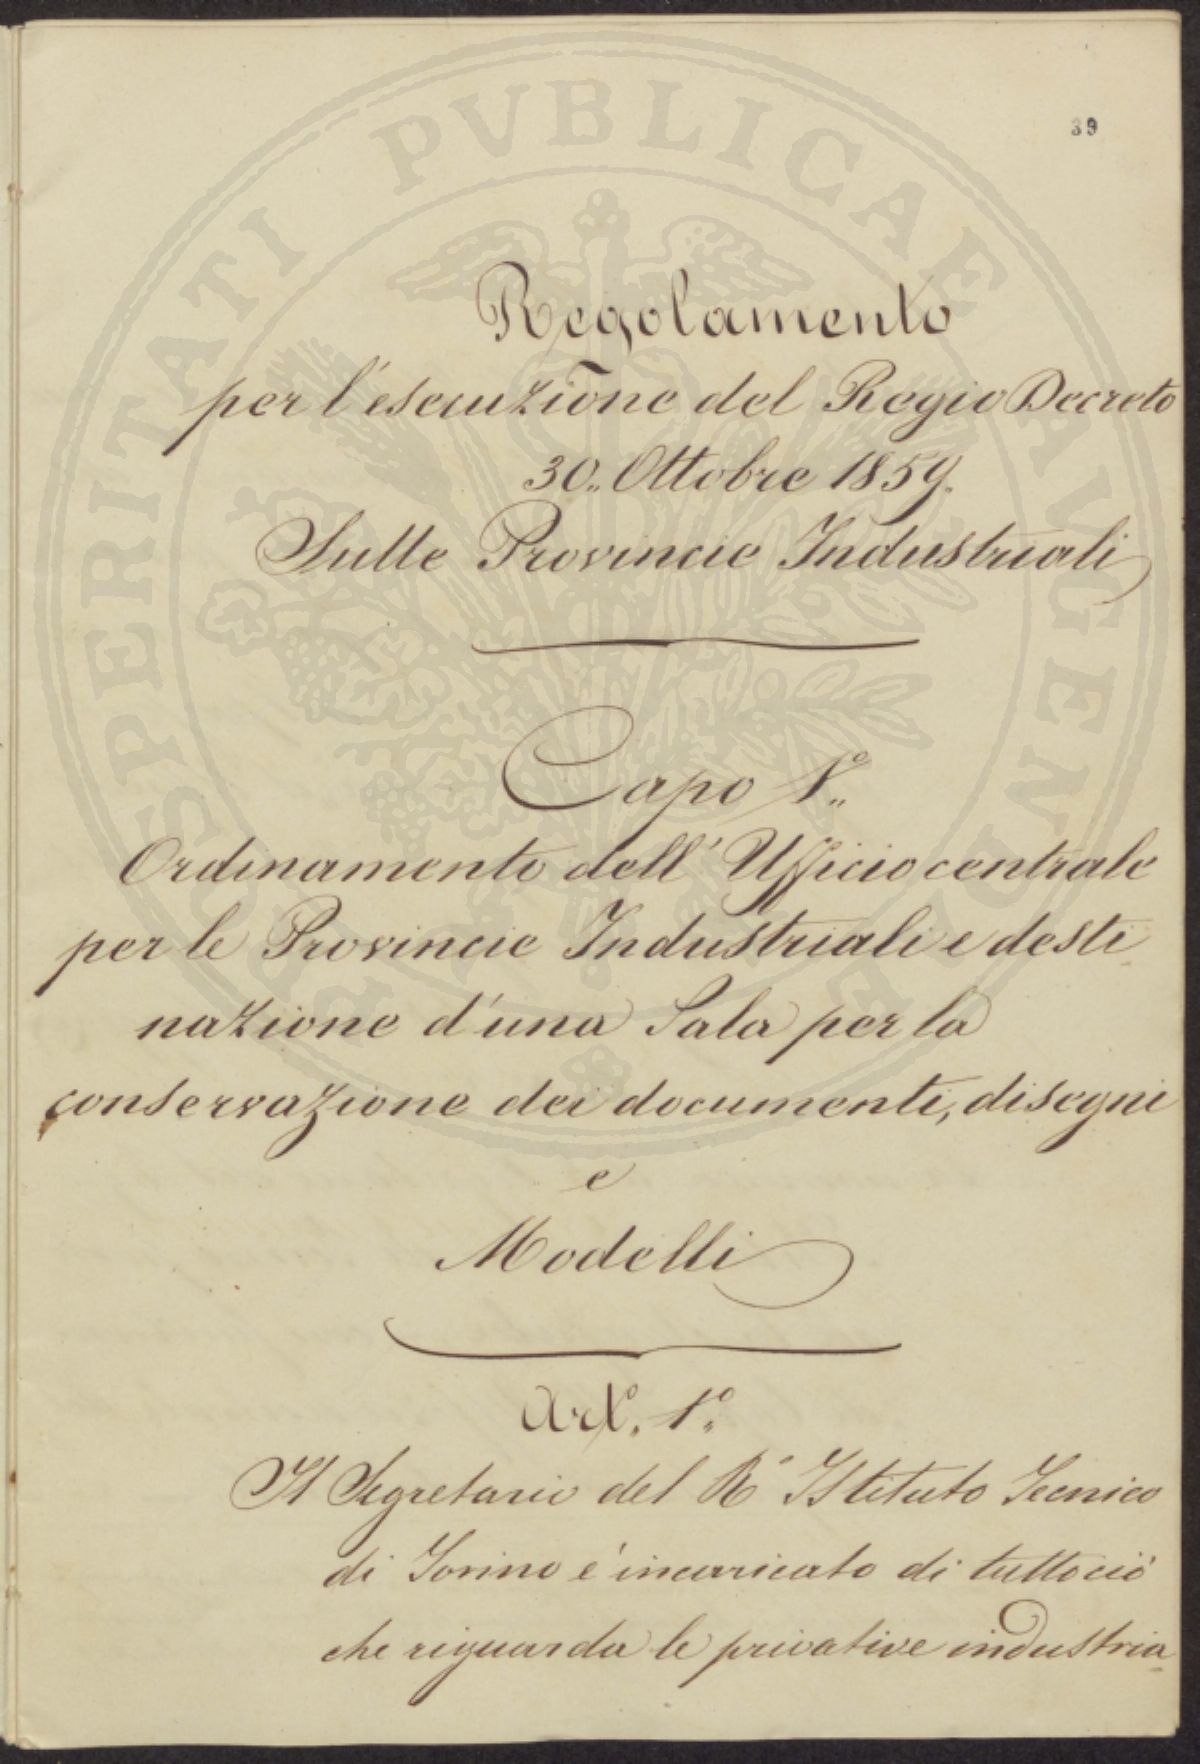 39
Regolamento
per l'esecuzione del Regio Decreto
30,, Ottobre 1859.
Sulle Provincie Industriali
Capo 1°,,
Ordinamento dell' Ufficio centrale
per le Provincie Industriali e desti
nazione d'una Sala per la
conservazione dei documenti, disegni
e
Modelli
Art°,, 1°,,
Il Segretario del R° Istituto Tecnico
di Torino é incaricato di tuttociò
che riguarda le privative industria
PROSPERITATI PVBLICAE AVGENDAE